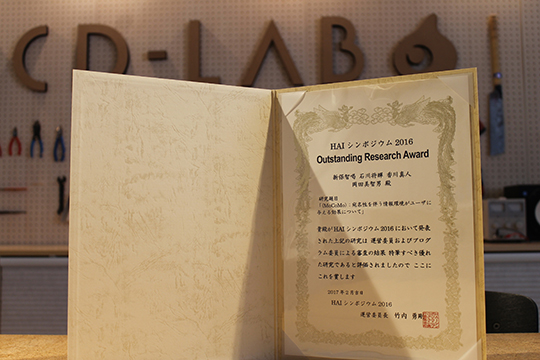 CD-LAB
HAI シンポジウム 2016
Outstanding Research Award
新保智鳴 石川将輝 香川真人
岡田美智男 殿
研究題目
「〈MoCoMo〉: 宛名性を伴う情報環境がユーザに
与える効果について」
貴殿がHAIシンポジウム2016において発表
された上記の研究は 運営委員およびプログ
ラム委員による審査の結果 特筆すべき優れ
た研究であると評価されましたので ここに
これを賞します
2017年2月吉日
HAI シンポジウム 2016
運営委員長 竹内 勇剛